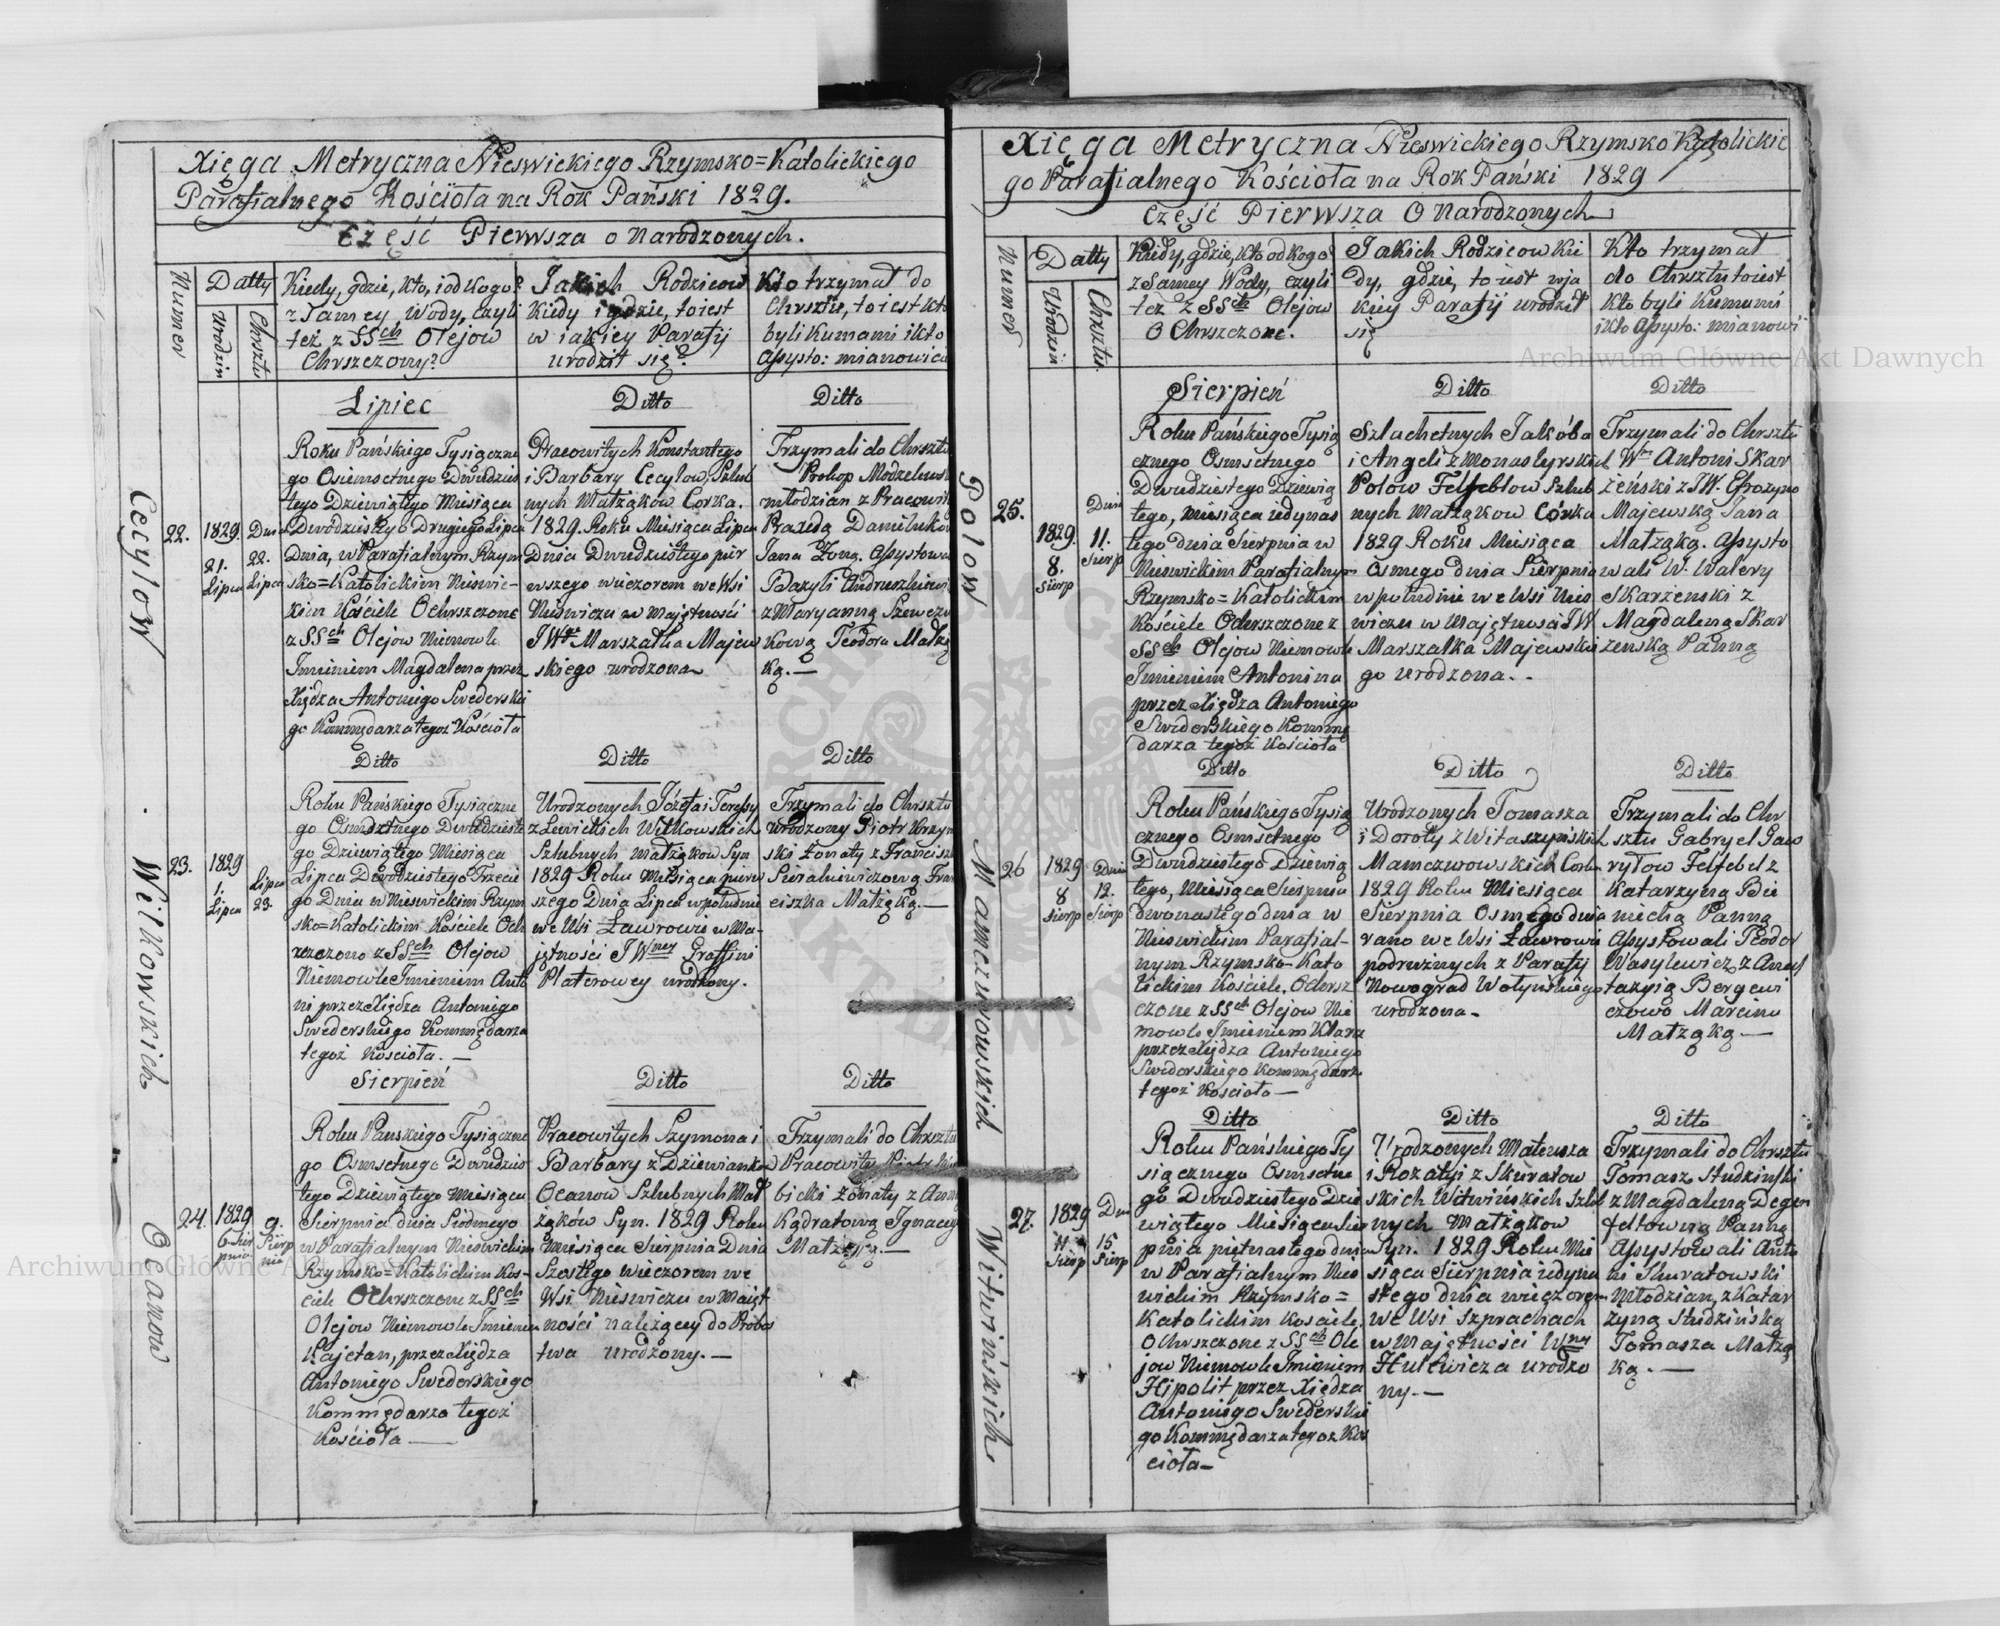 Xięga Metryczna Nieswickiego Rzymsko=Katolickiego
Parafialnego Kościoła na Rok Pański 1829.
Część Pierwsza o Narodzonych.
Numer
Datty
Urodzin
Chrsztu
Kiedy, gdzie, kto, i od kogo?
z Samey, Wody, czyli
też z SSch Olejow
Chrszczony?
Jakich Rodzicow
Kiedy i gdzie, to iest
w iakiey Parafij
urodził się?
Kto trzymał do
Chrsztu, to iest kto
byli kumami i kto
assysto: mianowicie
Cecylow
22.
1829.
21.
Lipca
Dnia
22.
Lipca
Lipiec
Roku Pańskiego Tysiączne
go Osiemsetnego Dwudzies
tego Dziewiątego Miesiąca
Dwódziestego Drugiego Lipca
Dnia, w Parafialnym Rzym
sko=Katolickim Nieswic-
kim Kościele Ochrszczone
z SSch Olejow Niemowle
Imieniem Magdalena przez
Xiędza Antoniego Swederskie
go Kommędarza tegoż Kościoła
Ditto
Pracowitych Konstantego
i Barbary Cecylow, Szlub
nych Małżąków Corka.
1829. Roku Miesiąca Lipca
Dnia Dwudziestego pier
wszego wieczorem we Wsi
Nieswiczu w Majętności
JWgo Marszałka Majew
skiego urodzona
Ditto
Trzymali do Chrsztu
Prokop Modzelews
młodzian z Pracowitą
Paraską Danilukow
Jana Żoną. Assystowa
Bazyli Andruszkiewi
z Maryanną Szewczu
kową Teodora Małżą
ką.—
Wilkowskich
23.
1829
1.
Lipca
Lipca
23.
Ditto
Roku Pańskiego Tysiączne
go Osmsetnego Dwudzieste
go Dziewiątego Miesiąca
Lipca Dwodziestego Trzecie
go Dnia w Nieswickim Rzym
sko=Katolickim Kościele Och
rszczono z SSch Olejow
Niemowle Imieniem Anto
ni przez Xiędza Antoniego
Swederskiego Kommędarza
tegoż Kościoła.—
Ditto
Urodzonych Józefa i Teressy
z Lewickich Wilkowskich
Szlubnych Małżąkow Syn
1829 Roku Miesiąca pierw
szego Dnia Lipca w południe
we Wsi Ławrowie w Ma-
jętności JWney Graffini
Platerowey urodzony.
Ditto
Trzymali do Chrsztu
urodzony Piotr Krzyw
ski żonaty z Francisz
Surałuwiczową Fran
ciszka Małżąką.—
Oeanow
24.
1829
6 Sier
pnia
9.
Sierp
nia
Sierpień
Roku Pańskiego Tysiączne
go Osmsetnego Dwudzies
tego Dziewiątego Miesiąca
Sierpnia dnia Siodmego
w Parafialnym Nieswickim
Rzymsko=Katolickim Koś-
ciele Ochrszczone z SSch
Olejow Niemowle Imieniem
Kajetan, przez Xiędza
Antoniego Swederskiego
Kommędarza tegoż
Kościoła—
Ditto
Pracowitych Szymona i
Barbary z Dziewianków
Oeanow Szlubnych Mał
żąków Syn. 1829 Roku
Miesiąca Sierpnia Dnia
Szostego wieczorem we
Wsi Nieswiczu w Maięt
ności należący do Probos
twa urodzony.—
Ditto
Trzymali do Chrsztu
Pracowity Piotr
bicki żonaty z Anną
Kądratową Ignacego
Małżąką.—
Xięga Metryczna Nieswickiego Rzymsko Katolickie
go Parafialnego Kościoła na Rok Pański 1829
Część Pierwsza O Narodzonych
Numer
Datty
Urodzin
Chrsztu.
Kiedy, gdzie, kto od kogo
z Samey Wody, czyli
też z SSch Olejow
O Chrszczone.
Jakich Rodzicow kie
dy, gdzie, to iest w ja
kiey Parafij urodził
się
Kto trzymał
do Chrsztu to iest
kto byli Kumami
i kto Assysto: mianowi
Polow
25.
1829.
8.
Sierp
Dnia
11.
Sierp
Sierpień
Roku Pańskiego Tysią
cznego Osmsetnego
Dwudziestego Dziewią
tego, miesiąca iedynas
tego dnia Sierpnia w
Nieswickim Parafialnym
Rzymsko=Katolickim
Kościele Ochrszczone z
SSch Olejow Niemowle
Imieniem Antonina
przez Xiędza Antoniego
Swederskiego Kommę
darza tegoż Kościoła
Ditto
Szlachetnych Jakóba
i Angeli z Monastyrskich
Polow Felfeblow Szlub
nych Małżąkow Córka
1829 Roku Miesiąca
Osmego dnia Sierpnia
w południe we Wsi Nies
wiczu w Majętności JW
Marszałka Majewskie
go urodzona..
Ditto
Trzymali do Chrsztu
Wny Antoni Skar
żeński z JW. Efrozyno
Majewską Jana
Małżąką. Assysto
wali W. Walery
Skarzenski z
Magdaleną Skar
zenską Panną
Mamczwowskich
26
1829
8
Sierp
Dnia
12.
Sierp
Ditto
Roku Pańskiego Tysią
cznego Osmsetnego
Dwudziestego Dziewią
tego, Miesiąca Sierpnia
dwonastego dnia w
Nieswickim Parafial-
nym Rzymsko-Kato
lickim Kościele, Ochrsz
czone z SSch Olejow Nie
mowle Imieniem Klara
przez Xiędza Antoniego
Swederskiego Kommędarz
tegoż Kościoła—
Ditto
Urodzonych Tomasza
i Doroty z Witaszyńskich
Mamczwowskich Corka
1829 Roku Miesiąca
Sierpnia Osmego dnia
rano we Wsi Ławrowie
podrużnych z Parafij
Nowograd Wołyńskiego
urodzona-
Ditto
Trzymali do Chr
sztu Gabryel Gaw
ryłow Felfebel z
Katarzyną Bie
niecką Panną
Assystowali Teodor
Wasylewicz z Anas
tazyią Bergewi
czowo Marcina
Małżąką—
Witwińskich
27.
1829
11
Sierp
Dnia
15
Sierp
Ditto
Roku Pańskiego Ty
siącznego Osmsetne
go Dwudziestego Dzie
wiątego Miesiąca Sier
pnia piętnastego dnia
w Parafialnym Nies
wickim Rzymsko=
Katolickim Kościele,
Ochrszczone z SSch Ole
jow Niemowle Imieniem
Hipolit przez Xiędza
Antoniego Swederskie
go Kommędarza tegoż Koś
cioła—
Ditto
Urodzonych Mateusza
i Rozalyi z Skuratow
skich Witwińskich Szlub
nych Małżąkow
Syn. 1829 Roku Mie
siąca Sierpnia iedyna
stego dnia wieczorem
we Wsi Szprachach
w Majętności Wney
Hulewicza urodzo
ny.—
Ditto
Trzymali do Chrsztu
Tomasz Studzinski
z Magdaleną Degen
feltowną Panną
Assystowali Anto
ni Skuratowski
Młodzian, z Katar
zyną Studzińską
Tomasza Małżą
ką.—
Archiwum Główne Akt Dawnych
Archiwum Główne Akt Dawnych